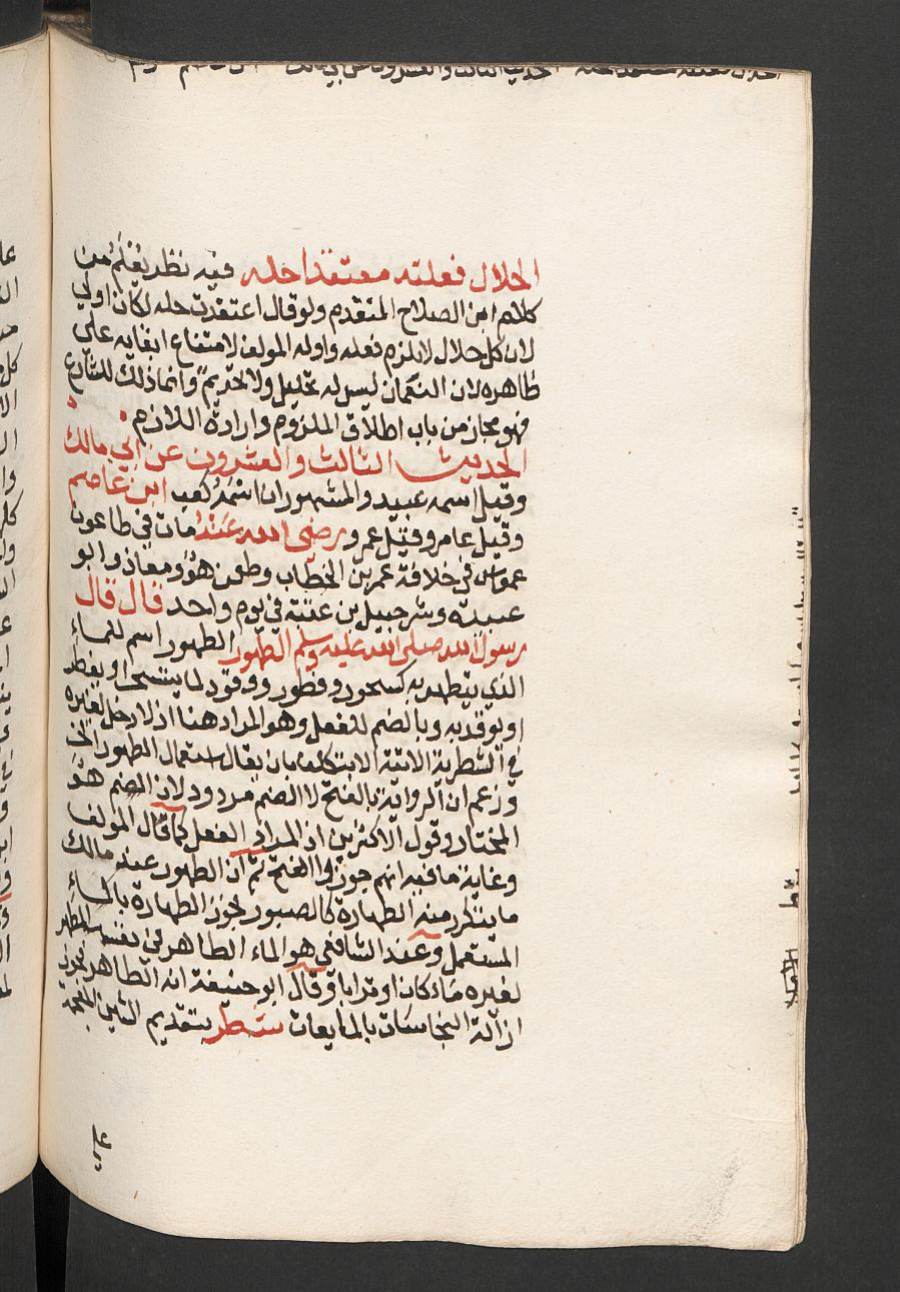 الحلال فعلته معتقدا حله فيه نظر يعلم من
كلام ابن الصلاح المتقدم ولو قال اعتقدت حله لكان اولي
لان كل حلال لا يلزم فعله واوله المولف لامتناع ابقايه على
ظاهره لان النعمان ليس له تحليل ولا تحريم وانما ذلك للشارع
فهو مجاز من باب اطلاق الملزوم وارادة اللازم
الحديث الثالث والعشرون عن ابي مالك
وقيل اسمه عبيد والمشهور ان اسمه كعب ابن عاصم
وقيل عامر وقيل عمرو رضي الله عنه مات في طاعون
عمواس في خلافة عمر بن الخطاب وطعن هو ومعاذ وابو
عبيدة وشرحبيل بن عتبة في يوم واحد قال قال
رسول الله صلى الله عليه وسلم الطهور اسم للماء
الذي يتطهر به كسحور وفطور ووقود لما يتسحر او يفطر
او يوقد به وبالضم للفعل وهو المراد هنا اذ لا دخل لغيره
في الشطرية الاتية الا بتكلف بان يقال استعمال الطهور الخ
وزعم ان الرواية بالفتح لا الضم مردود لان الضم هو
المختار وقول الاكثرين اذ المراد الفعل كما قال المولف
وغاية ما فيه انهم جوزوا الفتح ثم ان الطهور عند مالك
ما يتكرر منه الطهارة كالصبور لجوز الطهارة بالماء
المستعمل وعند الشافعي هو الماء الطاهر في نفسه المطهر
لغيره ماء كان او ترابا وقال ابو حنيفة انه الطاهر لجوز
ازالة النجاسات بالمايعات شطر بتقديم الشين المعجمة
على